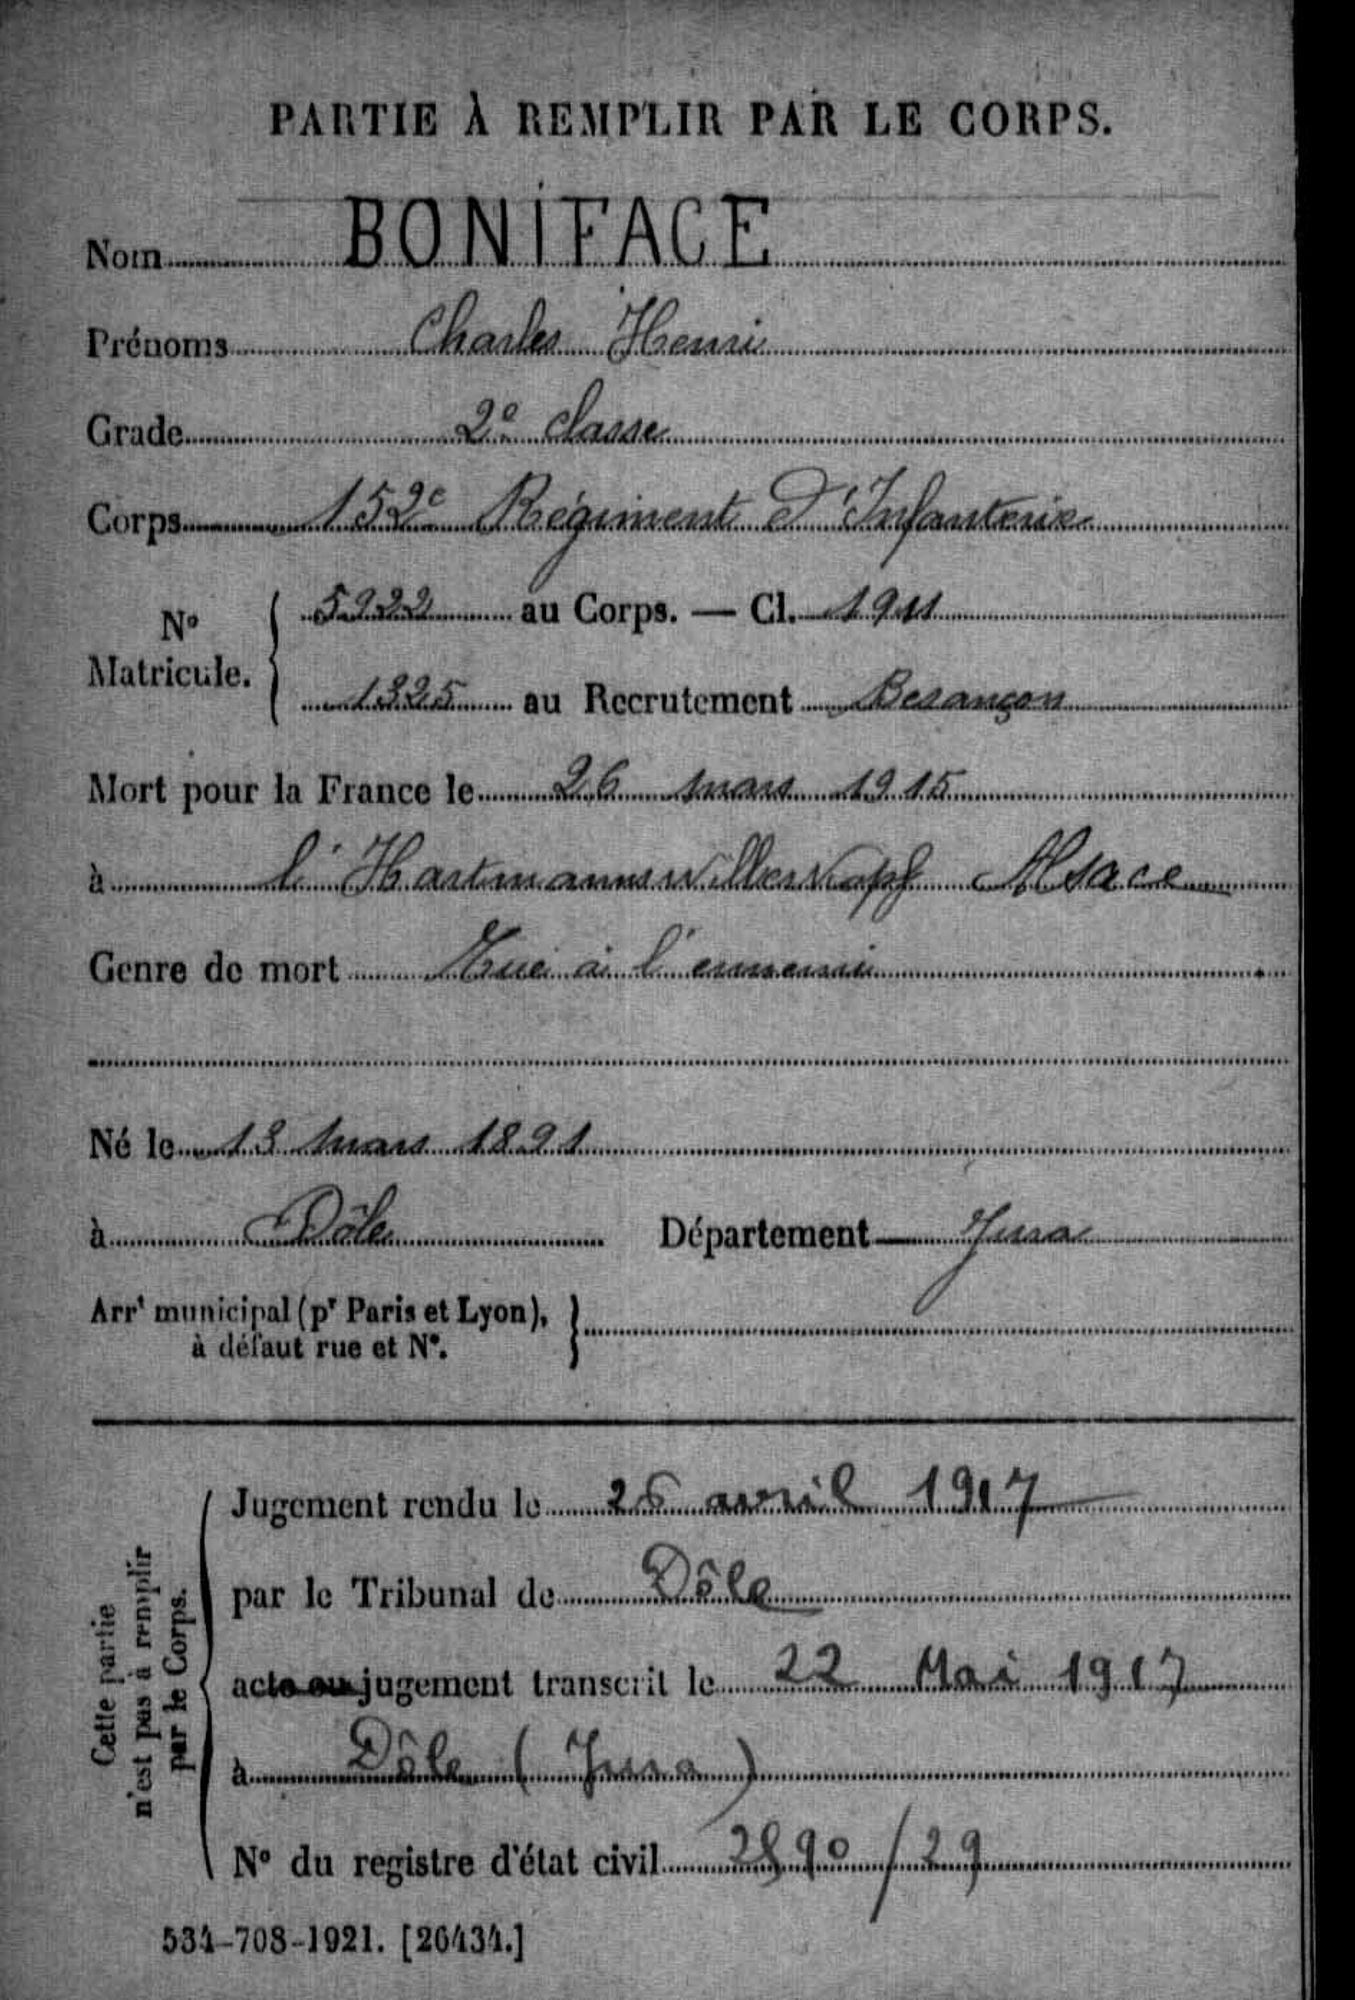 PARTIE À REMPLIR PAR LE CORPS.
Nom BONIFACE
Prénoms Charles Henri
Grade 2e classe
Corps 152e Régiment d'Infanterie
No Matricule. { 5922 au Corps. — Cl. 1911
1325 au Recrutement Besançon
Mort pour la France le 26 mars 1915
à l'Hartmannswillerkopf Alsace
Genre de mort Tué à l'ennemi
Né le 13 mars 1891
à Dôle Département Jura
Arrt municipal (pr Paris et Lyon),
à défaut rue et No.
Cette partie
n'est pas à remplir
par le Corps.
Jugement rendu le 26 avril 1917
par le Tribunal de Dôle
acte ou jugement transcrit le 22 Mai 1917
à Dôle (Jura)
No du registre d'état civil 2890/29
534-708-1921. [26434.]